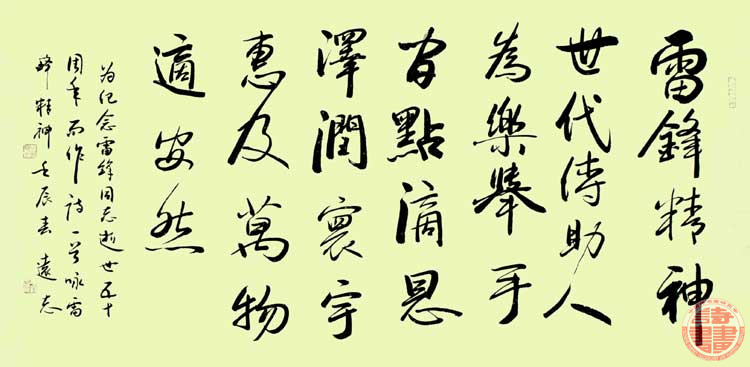 雷鋒精神
世代傳助人
為樂舉手
間點滴恩
澤潤寰宇
惠及萬物
適安然
为纪念雷鋒同志逝世五十
周年而作詩一首咏雷
鋒精神壬辰春遠志